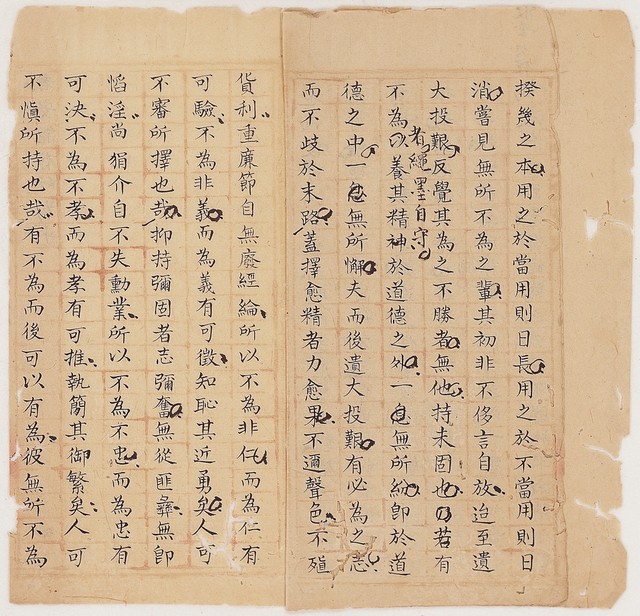 揆幾之本用之於當用則日長用之於不當用則日
消嘗見無所不為之輩其初非不侈言自放迨至遺
大投艱反覺其為之不勝者無他持未固也若有
者繩墨自守
不為以養其精神於道德之外一息無所紛卽於道
德之中一息無所懈夫而後遺大投艱有必為之志
而不歧於末路蓋擇愈精者力愈果不邇聲色不殖
貨利重廉節自無廢經綸所以不為非仁而為仁有
可驗不為非義而為義有可徵知恥其近勇矣人可
不審所擇也哉抑持彌固者志彌奮無從匪彝無卽
慆淫尚狷介自不失勳業所以不為不忠而為忠有
可決不為不孝而為孝有可推執簡其御繁矣人可
不愼所持也哉有不為而後可以有為彼無所不為